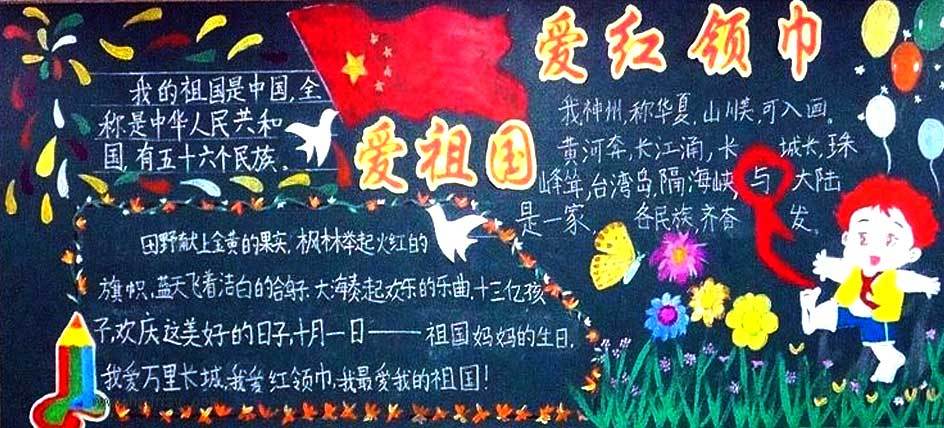 我的祖国是中国,全
称是中华人民共和
国,有五十六个民族。
爱祖国
爱红领巾
我神州,称华夏,山川美,可入画。
黄河奔,长江涌,长 城长,珠
峰耸,台湾岛,隔海峡,与 大陆
是一家 各民族,齐奋 发。
田野献上金黄的果实,枫林举起火红的
旗帜,蓝天飞着洁白的鸽子.大海奏起欢乐的乐曲,十三亿孩
子,欢庆这美好的日子,十月一日——祖国妈妈的生日.
我爱万里长城,我爱红领巾,我最爱我的祖国!